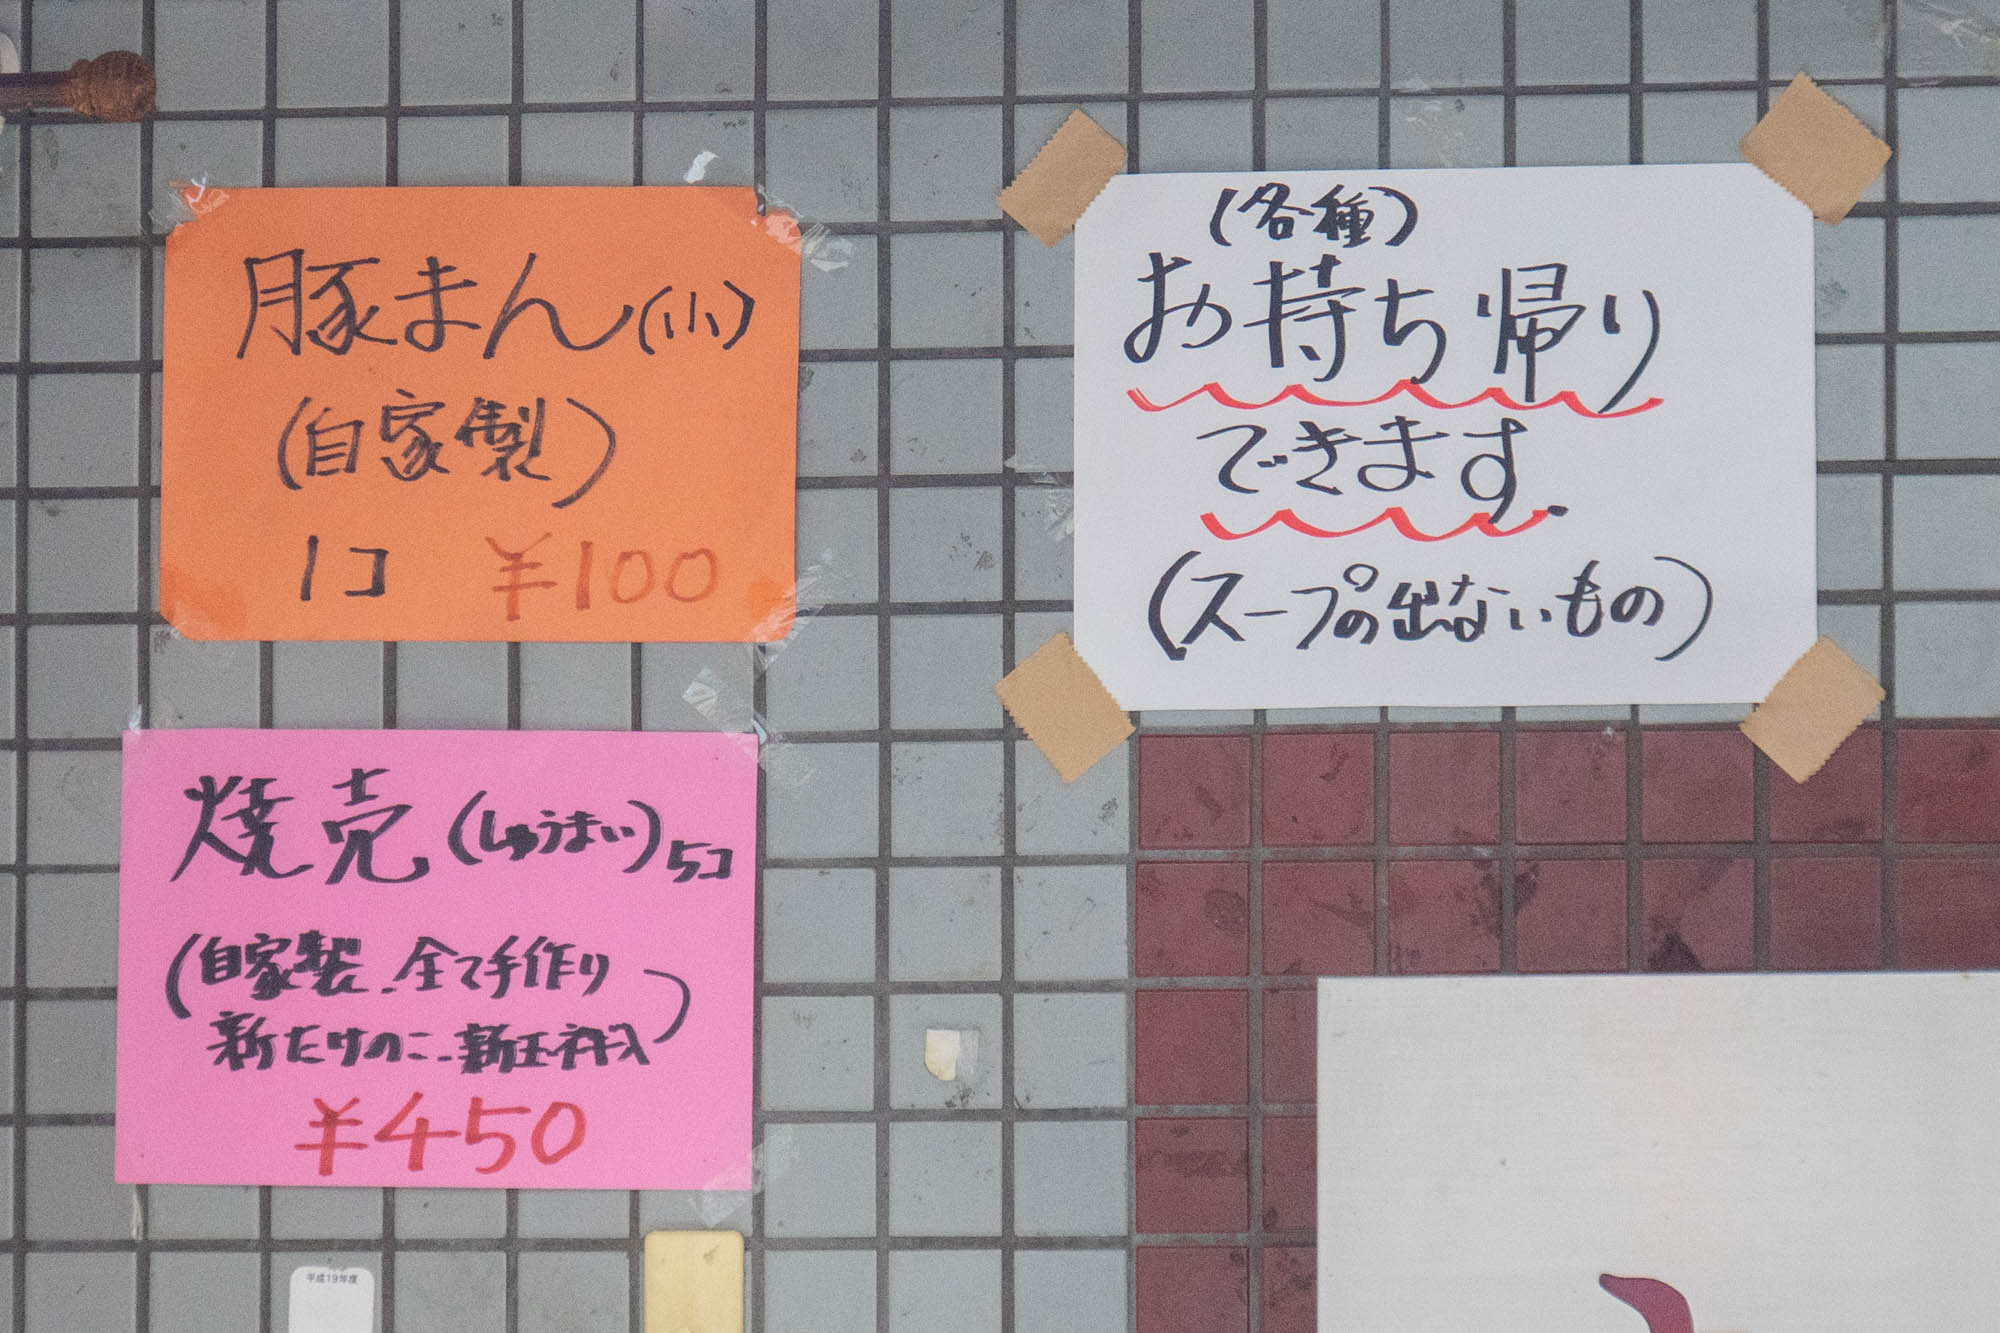 豚まん(小)
(自家製)
1コ ¥100
(各種)
お持ち帰り
できます.
(スープの出ないもの)
焼売(しゅうまい)5コ
(自家製.全て手作り
新たけのこ.新玉ネギ入)
¥450
平成19年度